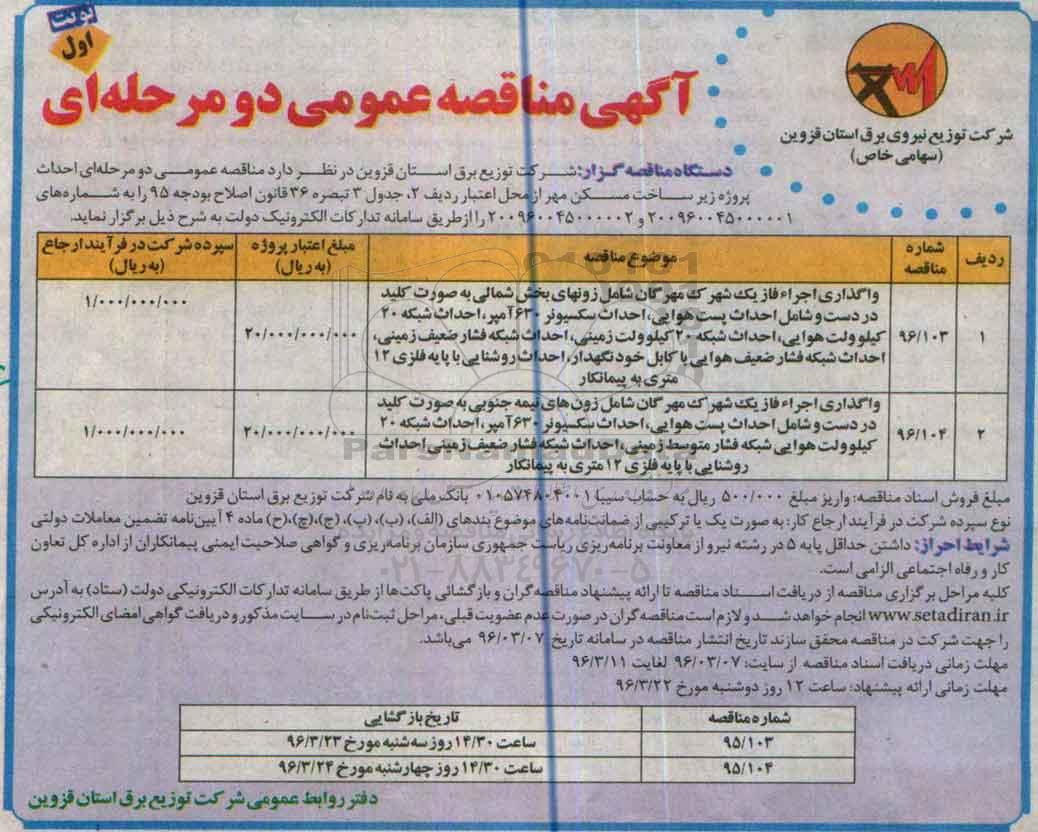 نوبت
اول
آگهی مناقصه عمومی دو مرحله‌ای
شرکت توزیع نیروی برق استان قزوین
(سهامی خاص)
دستگاه مناقصه گزار: شرکت توزیع برق استان قزوین در نظر دارد مناقصه عمومی دو مرحله‌ای احداث
پروژه زیر ساخت مسکن مهر از محل اعتبار ردیف ۲، جدول ۳ تبصره ۳۶ قانون اصلاح بودجه ۹۵ را به شماره‌های
۲۰۰۹۶۰۰۴۵۰۰۰۰۰۱ و ۲۰۰۹۶۰۰۴۵۰۰۰۰۰۲ را ازطریق سامانه تدارکات الکترونیک دولت به شرح ذیل برگزار نماید.
ردیف شماره مناقصه موضوع مناقصه مبلغ اعتبار پروژه (به ریال) سپرده شرکت در فرآیند ارجاع (به ریال)
۱ ۹۶/۱۰۳ واگذاری اجراء فاز یک شهرک مهرگان شامل زونهای بخش شمالی به صورت کلید
در دست و شامل احداث پست هوایی، احداث سکسیونر ۶۳۰ آمپر، احداث شبکه ۲۰
کیلو ولت هوایی، احداث شبکه ۲۰ کیلو ولت زمینی، احداث شبکه فشار ضعیف زمینی،
احداث شبکه فشار ضعیف هوایی با کابل خود نگهدار، احداث روشنایی با پایه فلزی ۱۲
متری به پیمانکار
۲۰/۰۰۰/۰۰۰/۰۰۰ ۱/۰۰۰/۰۰۰/۰۰۰
۲ ۹۶/۱۰۴ واگذاری اجراء فاز یک شهرک مهرگان شامل زون های نیمه جنوبی به صورت کلید
در دست و شامل احداث پست هوایی، احداث سکسیونر ۶۳۰ آمپر، احداث شبکه ۲۰
کیلو ولت هوایی شبکه فشار متوسط زمینی، احداث شبکه فشار ضعیف زمینی احداث
روشنایی با پایه فلزی ۱۲ متری به پیمانکار
۲۰/۰۰۰/۰۰۰/۰۰۰ ۱/۰۰۰/۰۰۰/۰۰۰
مبلغ فروش اسناد مناقصه: واریز مبلغ ۵۰۰/۰۰۰ ریال به حساب سیبا ۰۱۰۵۷۴۸۰۴۰۰۱ بانک ملی به نام شرکت توزیع برق استان قزوین
نوع سپرده شرکت در فرآیند ارجاع کار: به صورت یک یا ترکیبی از ضمانت‌نامه‌های موضوع بندهای (الف)، (ب)، (پ)، (ج)، (چ)، (ح) ماده ۴ آیین‌نامه تضمین معاملات دولتی
شرایط احراز: داشتن حداقل پایه ۵ در رشته نیرو از معاونت برنامه‌ریزی ریاست جمهوری سازمان برنامه‌ریزی و گواهی صلاحیت ایمنی پیمانکاران از اداره کل تعاون
کار و رفاه اجتماعی الزامی است.
کلیه مراحل برگزاری مناقصه از دریافت اسناد مناقصه تا ارائه پیشنهاد مناقصه‌گران و بازگشائی پاکت‌ها از طریق سامانه تدارکات الکترونیکی دولت (ستاد) به آدرس
www.setadiran.ir انجام خواهد شد و لازم است مناقصه گران در صورت عدم عضویت قبلی، مراحل ثبت‌نام در سایت مذکور و دریافت گواهی امضای الکترونیکی
را جهت شرکت در مناقصه محقق سازند تاریخ انتشار مناقصه در سامانه تاریخ ۹۶/۰۳/۰۷ می‌باشد.
مهلت زمانی دریافت اسناد مناقصه از سایت: ۹۶/۰۳/۰۷ لغایت ۹۶/۳/۱۱
مهلت زمانی ارائه پیشنهاد: ساعت ۱۲ روز دوشنبه مورخ ۹۶/۳/۲۲
شماره مناقصه تاریخ بازگشایی
۹۵/۱۰۳ ساعت ۱۴/۳۰ روز سه شنبه مورخ ۹۶/۳/۲۳
۹۵/۱۰۴ ساعت ۱۴/۳۰ روز چهارشنبه مورخ ۹۶/۳/۲۴
دفتر روابط عمومی شرکت توزیع برق استان قزوین
ParsNamadData
۰۲۱-۸۸۳۴۹۶۷۰-۵